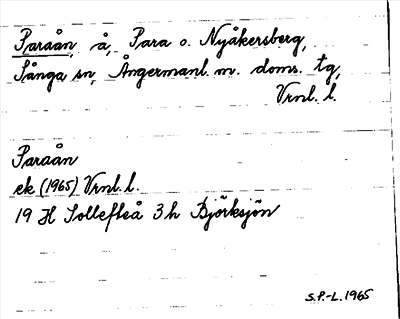 Paraån, å, Para o. Nyåkersberg,
Sånga sn, Ångermanl. m. doms. tg,
Vrnl. l.
Paraån
ek (1965) Vrnl. l.
19 H Sollefteå 3 h Björksjön
S.P.-L. 1965